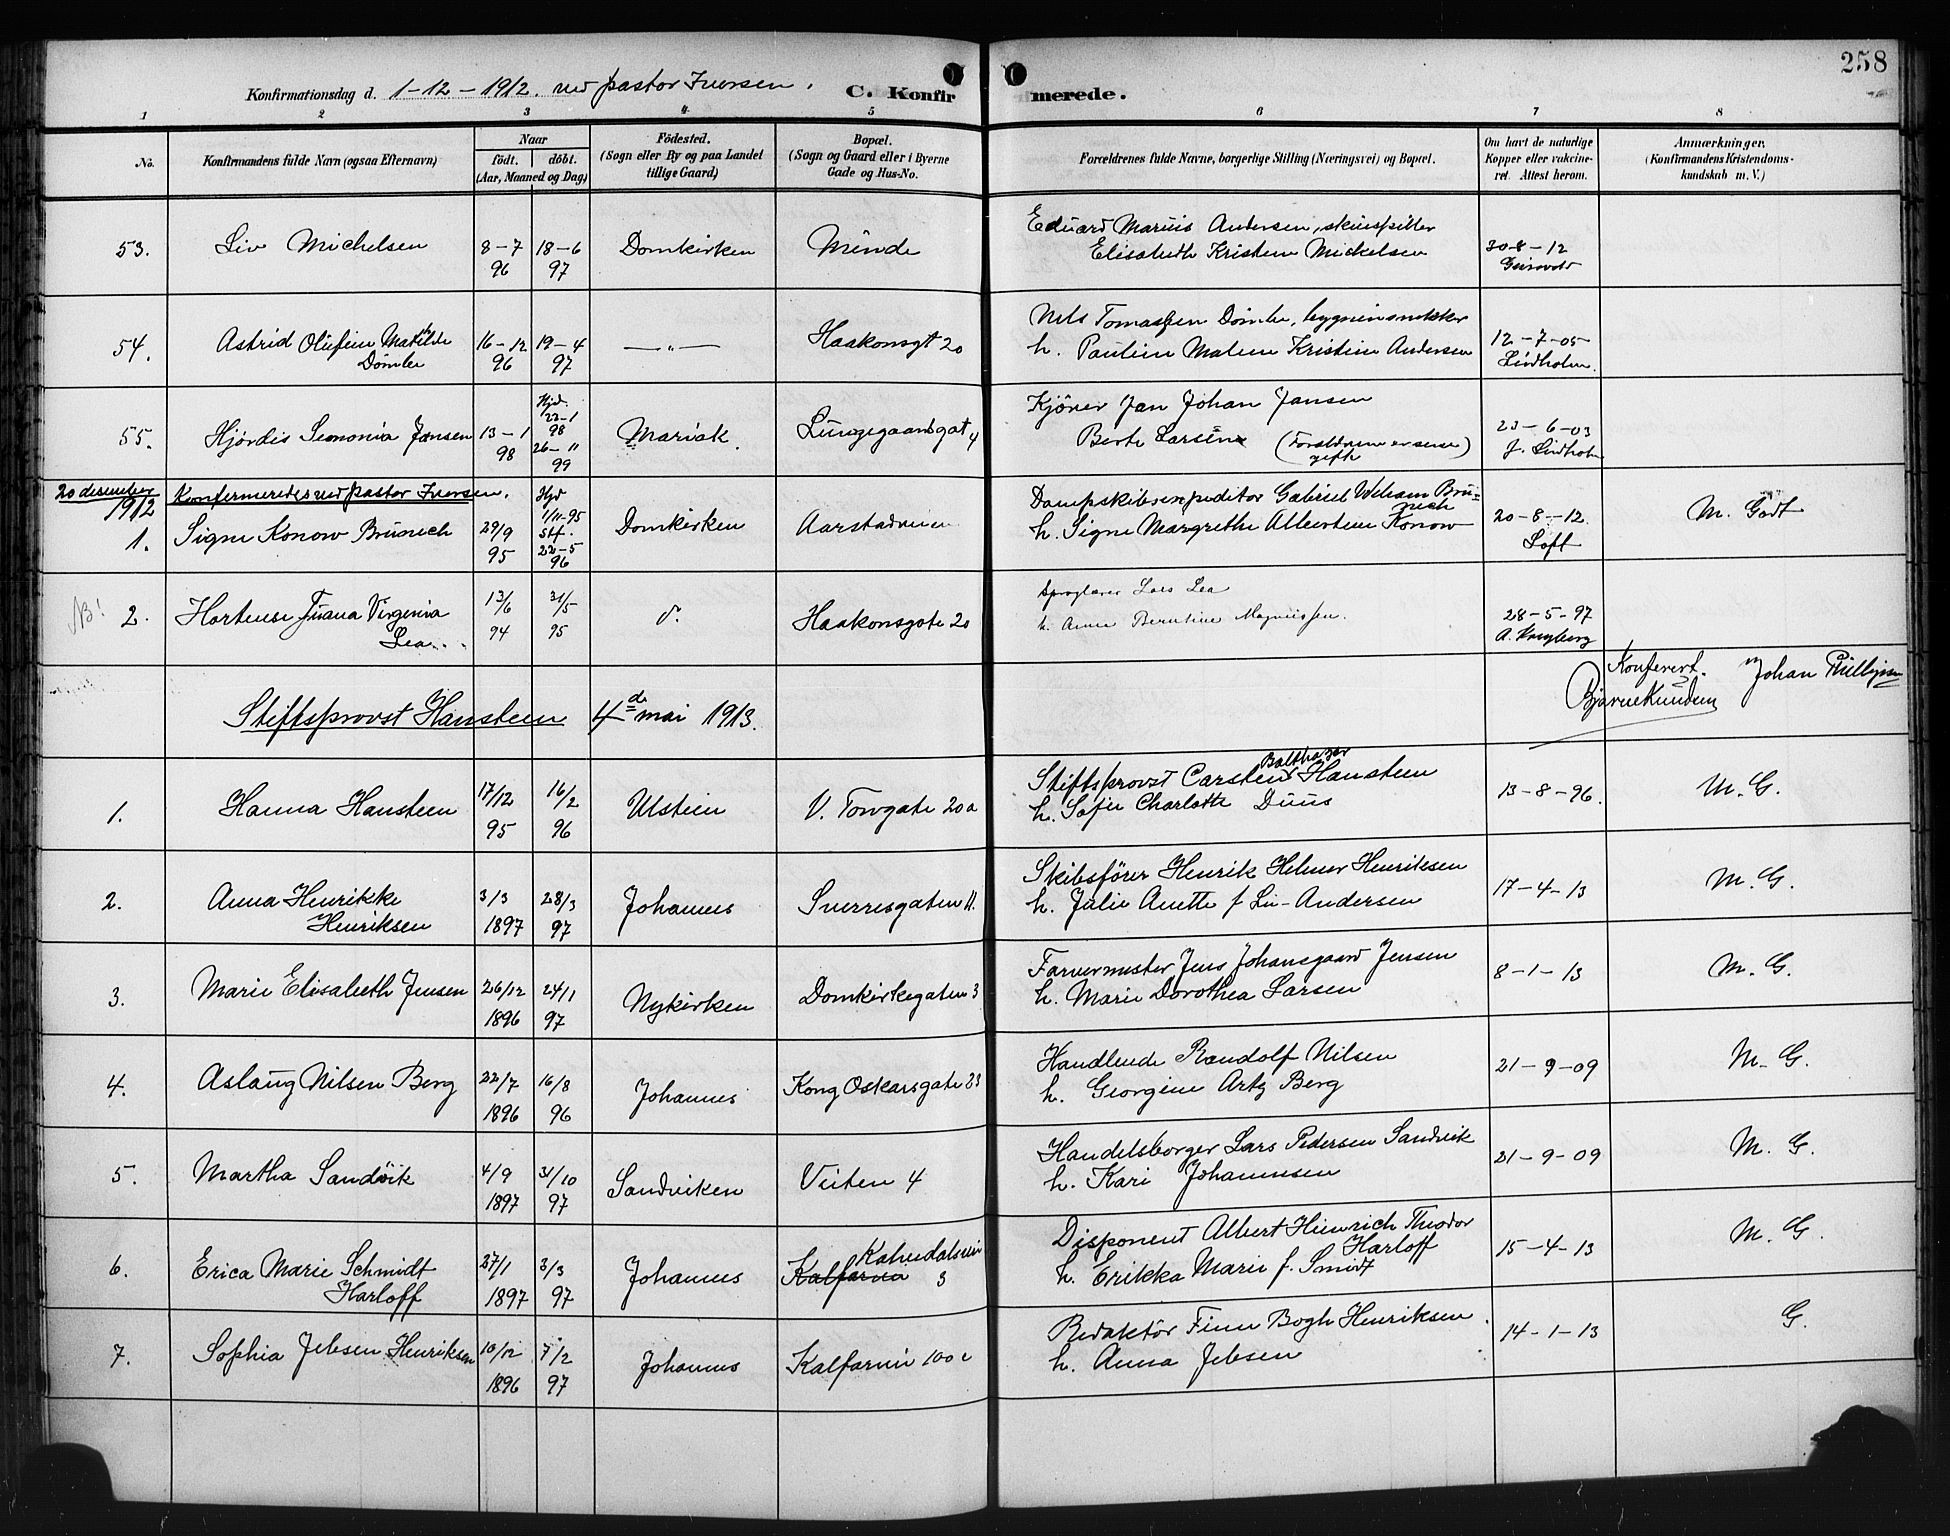 258
Konfirmationsdag d. 1-12-1912. ved pastor Iversen.
C. Konfirmerede.
1 2 3 4 5 6 7 8
No.
Konfirmandens fulde Navn (ogsaa Efternavn)
Naar
födt. döbt.
(Aar, Maaned og Dag)
Födested.
(Sogn eller By og paa Landet
tillige Gaard)
Bopæl.
(Sogn og Gaard eller i Byerne
Gade og Hus-No.
Forældrenes fulde Navne, borgerlige Stilling (Næringsvei) og Bopæl.
Om havt de naturlige
Kopper eller vakcine-
ret. Attest herom.
Anmærkninger.
(Konfirmandens Kristendoms-
kundskab m. V.)
53. Liv Michelsen 8-7 96 18-6 97 Domkirken Minde
Eduard Marius Andersen, skuespiller
Elisabeth Kristine Mickelsen
30-8-12
54. Astrid Olufine Matilde
Dömbe
16-12 96 19-4 97 —„— Haakonsgt 20
Nils Tomassen Dömbe, bygningssnekker
h. Pauline Maline Kristine Andersen
12-7-05
Lindholm.
55. Hjördis Semonia Jansen 13-1 98
Hjd. 23-1 98
26-11 99
Mariak. Lungegaardsgat 4
Kjörer Jan Johan Jansen
Berte Larsen (Forældrene er senere
gifte)
23-6-03
J. Lindholm
20 desember 1912 Konfermeredes ved pastor Iversen.
1. Signe Konow Brunech 29/9 95
Hjd 1/11-95
Stf. 22-5 96
Domkirken Aarstadveien
Dampskibsexpeditör Gabriel Wilhiam Bru-
nech
h. Signe Margrethe Albertine Konow
20-8-12.
Loft
M. Godt
NB! 2. Hortense Juana Virginia
Lea
13/6 94 31/5 95 d. Haakonsgate 20
Sproglærer Lars Lea
h. Anna Berntine Magnussen.
28-5-97
A. Krogberg
Konferert.
Bjarne Knudsen
Johan
Stiftsprovst Hansteen 4de mai 1913.
1. Hanna Hansteen 17/12 95 16/2 96 Utstein V. Torvgate 20a
Stiftsprovst Carsten Balthazar Hansteen
h. Sofie Charlotte Duus
13-8-96. M. G.
2. Anna Henrikke
Henriksen
3/3 1897 28/3 97 Johannes Sverresgaten 11.
Skibsförer Henrik Helmer Henriksen
h. Julie Anette f Lie-Andersen
17-4-13 M. G.
3. Marie Elisabeth Jensen 26/12 1896 24/1 97 Nykirken Domkirkegaten 3
Farvermester Jens Johansgaard Jensen
h. Marie Dorothea Larsen
8-1-13 M. G.
4. Aslaug Nilsen Berg 22/7 1896 16/8 96 Johannes Kong Oskarsgate 23
Handlende Randolf Nilsen
h. Georgine Artz Berg
21-9-09 M. G.
5. Martha Sandvik 4/9 1897 31/10 97 Sandviken Veiten 4
Handelsborger Lars Pedersen Sandvik
h. Kari Johannesen
21-9-09 M. G.
6. Erica Marie Schmidt
Harloff
27/1 1897 3/3 97 Johannes Kalfarvei Kalvedalsvei 3
Disponent Albert Hienrich Theodor
Harloff
h. Erikka Marie f. Smidt
15-4-13 M. G.
7. Sophia Jebsen Henriksen 10/12 1896 7/2 97 Johannes Kalfarvei 100 c
Redaktör Finn Bogh Henriksen.
h. Anna Jebsen
14-1-13 G.